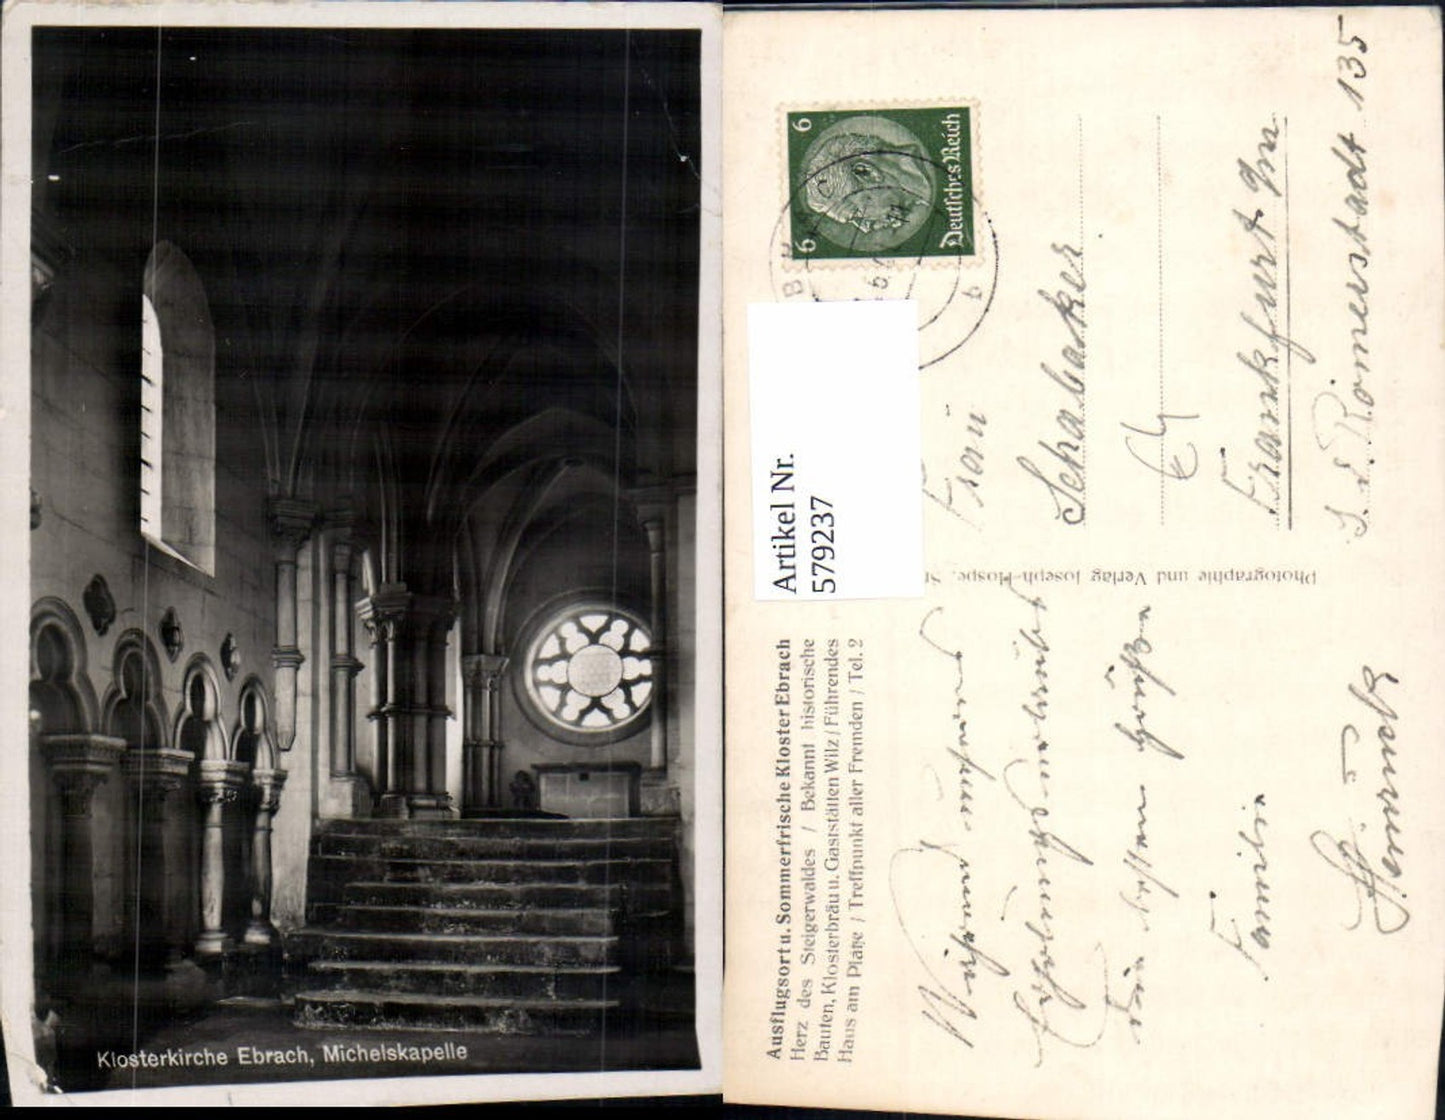 Klosterkirche Ebrach, Michelskapelle
Ausflugsort u. Sommerfrische Kloster Ebrach
Herz des Steigerwaldes / Bekannt historische
Bauten, Klosterbräu u. Gaststätten Wilz / Führendes
Haus am Platze / Treffpunkt aller Fremden / Tel. 2
Während unseres
Erholungsurlaubs
die besten Grüße
Familie
Photographie und Verlag Joseph Hospe, S
Artikel Nr.
579237
6 6
Deutsches Reich
Frau
Schabaker
Frankfurt a/m.
Römerstadt 135